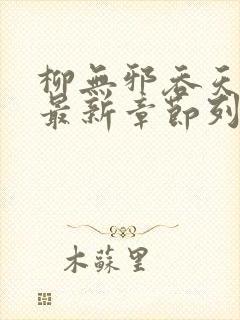 柳無邪吞天
最新章節列
木蘇里